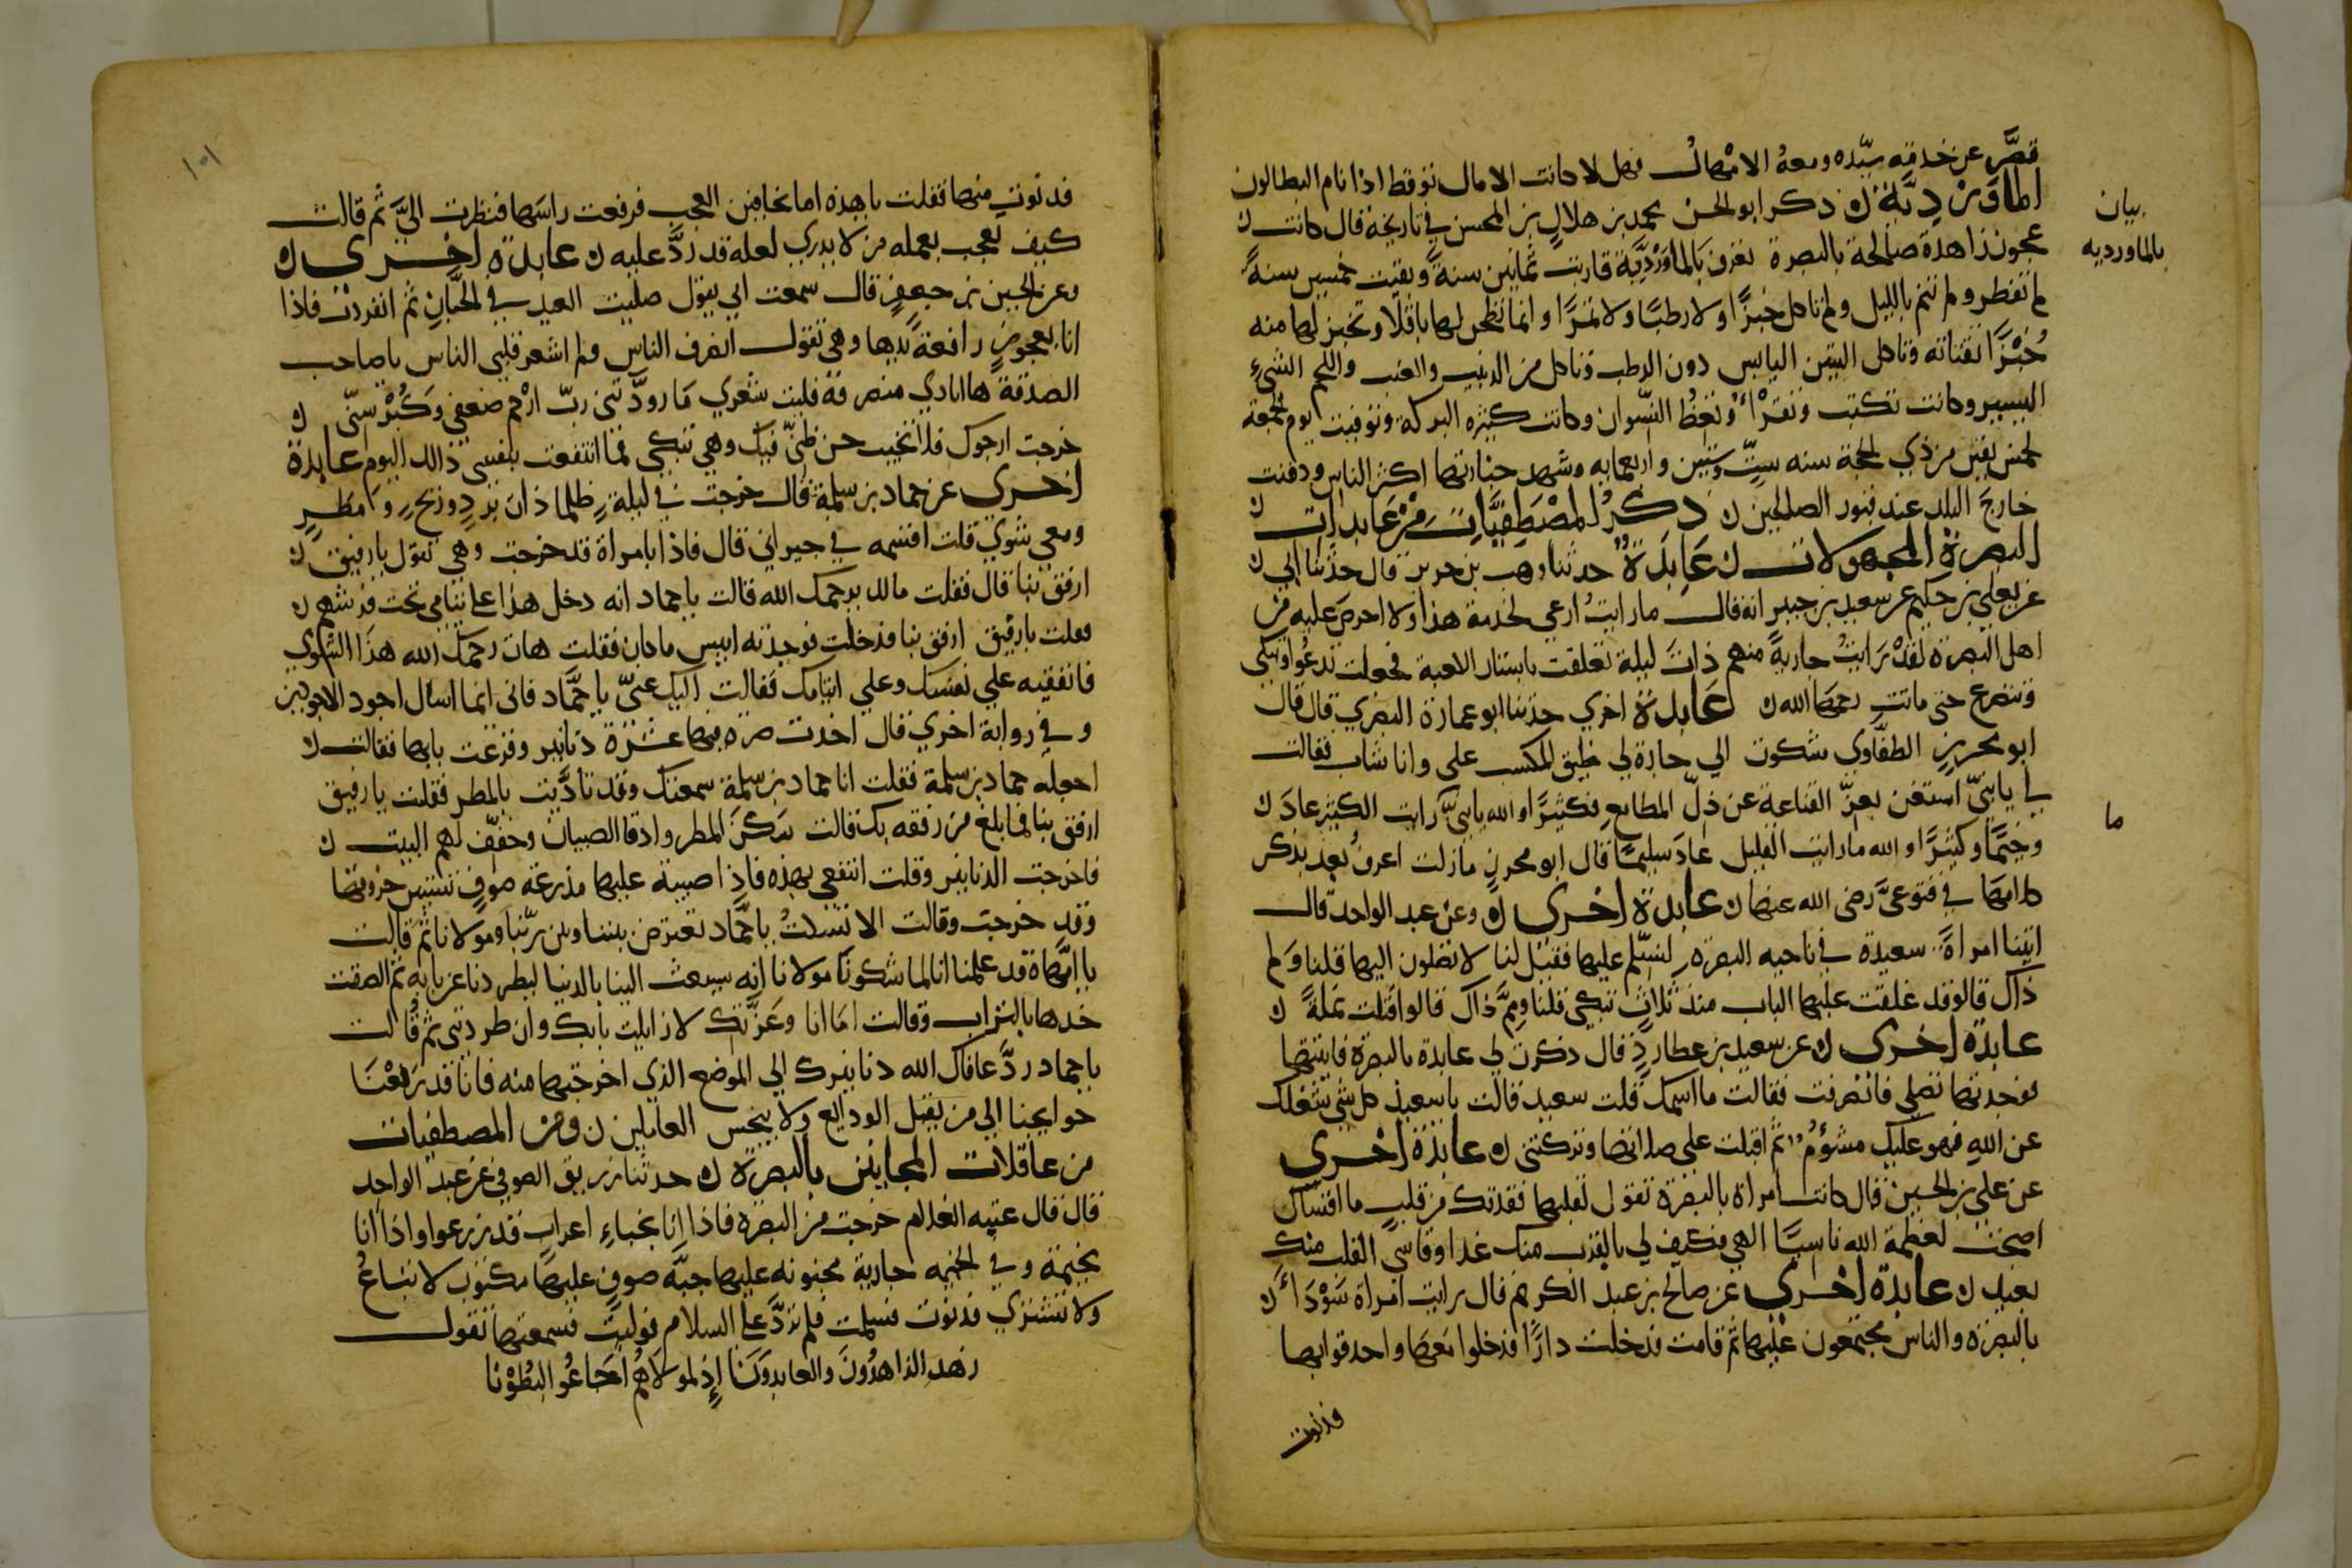 قصَّر عن خدمته سيّده ومعهُ الامْهالُ فهل لا كانت الامال توقظ اذا نام البطالون
الماوَرْدِيَّة ن ذكر ابو الحسن محمد بن هلال بن المحسن في تاريخه قال كانت ن
عجوز زاهدة صالحة بالبصرة تعرف بالماوَرْدِيَّة قاربت ثمانين سنةً وبقيت خمسين سنةً
لم تفطر ولم تنم بالليل ولم تاكل خبزًا ولا رطبًا ولا تمرًا وانما يطحن لها باقلا وتخبز لها منه
خُبْزًا تقتاته وتاكل التين اليابس دون الرطب وتاكل من الزبيب والعنب واللحم الشيء
اليسير وكانت تكتب وتقرْأُ وتعظُ النسوان وكانت كثيرة البركة وتوفيت يوم الجمعة
لخمس بقين من ذي الحجة سنه ستٍّ وستين واربعمايه وشهد جنازتها اكثر الناس ودفنت
خارجَ البلد عند قبور الصالحين ن ذكرُ المصْطَفِيَّاتِ مِنْ عَابدات ن
البصرة المجهولات ن عَابِدَةٌ حدثنا وهب بن جرير قال حدثنا ابي ن
عن يعلى بن حكيم عن سعيد بن جبير انه قال ما رايتُ ارعى لحرمة هذا ولا احرصَ عليه من
اهل البصرة لقدْ رَايتُ جاريةً منهم ذاتَ ليلة تعلقت باستار الكعبة فجعلت تدعُوا وتبكى
وتتضرع حتى ماتت رحمها الله ن عَابِدة اخرى حدثنا ابو عمارة البصري قال قال
ابو محرز الطفَّاوى شكوت الي جارة لي ضيق المكسب على وانا شاب فقالت
لي يا بنيّ استعن بعزّ القناعة عن ذلّ المطامع فكثيرًا والله يا بنيَّ رايت الكثير عادَ ن
وخيمًا وكثيرًا والله ما رايت القليل عادَ سليمًا قال ابو محرز ما زلت اعرفُ بعد بذكر
كلامها في قنوعى رضى الله عنها ن عابدة اخرى ن وعن عبد الواحد قال
اتينا امراةً سعيدة في ناحيه البصرة لنسلّم عليها فقيل لنا لا تصلون اليها قلنا وَلم
ذاك قالو قد غلقت عليها الباب منذ ثلاثٍ تبكى قلنا وممَّ ذاك قالوا قتلت نملةً ن
عابدة اخرى ن عن سعيد بن عطارد قال ذكرت لي عابدة بالبصرة فاتيتها
فوجدتها تصلى فانصرفت فقالت ما اسمك قلت سعيد قالت يا سعيد كل شى شغلك
عن الله فهو عليك مشؤمٌ ثم اقبلت على صلاتها وتركتنى ن عابدة اخرى
عن علي بن الحسين قال كانت امراة بالبصرة تقول لقلبها فقدتك من قلب ما اقساك
اصبحت لعظمة الله ناسيًا الهي فكيف لي بالقرب منك غدا وقاسى القلب منك
بعيد ن عابدة اخرى عن صالح بن عبد الكريم قال رايت امراة سَوْدَاءَ ن
بالبصرة والناس مجتمعون عليها ثم قامت فدخلت دارًا فدخلوا معها واحدقوا بها
فدنوت
بيان
بالماورديه
ما
١٠١
فدنوت منها فقلت يا هذه اما تخافين العجب فرفعت راسَها فنظرت اليَّ ثم قالت
كيف يعجب بعمله من لا يدري لعله قد ردَّ عليه ن عابدة اخرى ن
وعن الحسين بن جعفر قال سمعت ابي يقول صليت العيد في الجبّان ثم انفردت فاذا
انا بعجوزٍ رافعةً يديها وهى تقول انصرف الناس ولم اشعر قلبى الناس يا صاحب
الصدقة ها انا ذي منصرفة فليت شعري مَا زودّتنى ربّ ارْحم ضعفى وَكُبْرَ سنّى ن
خرجت ارجوك فلا تخيب حسن ظنى فيك وهي تبكى فما انتفعت بنفسى ذالك اليوم عابدة
اخرى عن حماد بن سلمة قال خرجت في ليلةٍ ظلما ذات بردٍ وريحٍ وَمَطرٍ
ومعى شوي قلت اقسمه في جيرانى قال فاذا بامراة قد خرجت وهى تقول يا رفيق ن
ارفق بنا قال فقلت مالك يرحمك الله قالت يا حماد انه دخل هذا على يتامى تحت فرشهم ن
فقلت يا رفيق ارفق بنا فدخلت فوجدته ايبس ما كان فقلت هاك رحمك الله هذا الشوي
فانفقيه على نفسَك وعلى ايتامك فقالت اليك عنّى يا حمَّاد فانى انما اسال اجود الاجودين
وفي رواية اخرى قال اخذت صرة فيها عشرة دنانير وقرعت بابها فقالت ن
احجله حماد بن سلمة فقلت انا حماد بن سلمة سمعتك وقد تاذَّيت بالمطر فقلت يا رفيق
ارفق بنا فما بلغ من رفقه بك قالت سَكنَ المطر وادفا الصبيان وجفّف لهم البيت ن
فاخرجت الدنانير وقلت انتفعى بهذه فاذا صبية عليها مدرعة صوف تستبين خروقها
وقد خرجت وقالت الا تسكتُ يا حمَّاد تعترض بيننا وبين ربّنا ومولانا ثم قالت
يا امَّاة قد علمنا انا لما شكونا مولانا انه سيبعث الينا بالدنيا ليطردنا عن بابه ثم الصقت
خدها بالتراب وقالت امَا انا وَعَزَّتك لا زايلت بابك وان طردتنى ثم قالت
يا حماد ردَّ عافاك الله دنانيرك الي الموضع الذي اخرجتها منه فانا قد رَفعْنَا
حوايجنا الي من يقبل الودايع ولا يبخس العاملين ن ومن المصطفيات
من عاقلات المجانين بالبصرة ن حدثنا زريق الصوفى عن عبد الواحد
قال قال عتبه الغلام خرجت من البصرة فاذا انا بخباءِ اعراب قد زرعوا واذا انا
بخيمة وفي الخيمه جارية مجنونه عليها جبَّة صوف عليها مكتوب لا تباعُ
ولا تشترى فدنوت فسلمت فلم تردَّ عليَّ السلام فوليتُ فسمعتها تقول
زهد الزاهدُونَ والعابدوَنَا إِذ لمولاهُم اَجَاعُوا البُطُوْنا